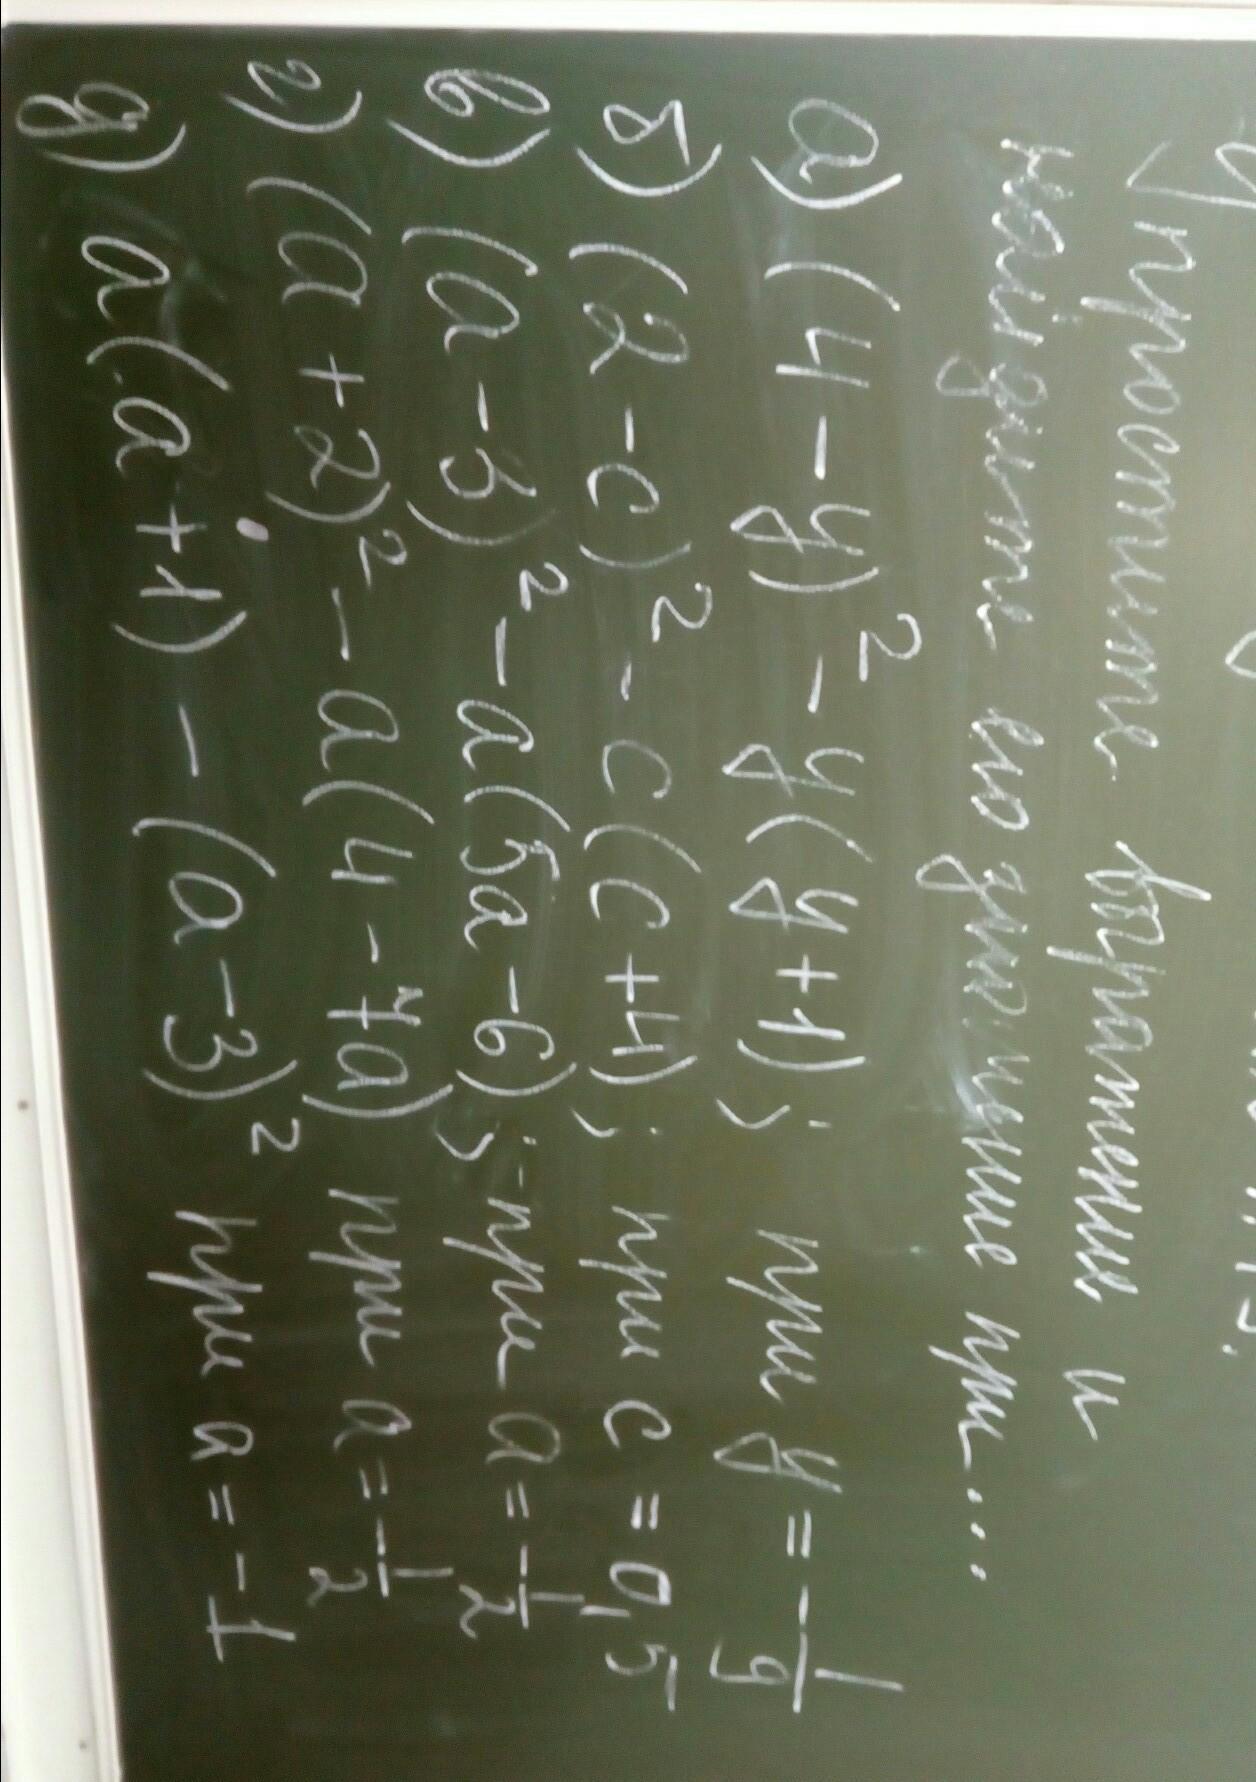 Упростите выражение и
найдите его значение при...
а) (4-y)² - y(y+1); при y = -1/9
б) (2-c)² - c(c+4); при c = 0,5
в) (a-3)² - a(5a-6); при a = -1/2
г) (a+2)² - a(4-7a) при a = -1/2
д) a(a+1) - (a-3)² при a = -1